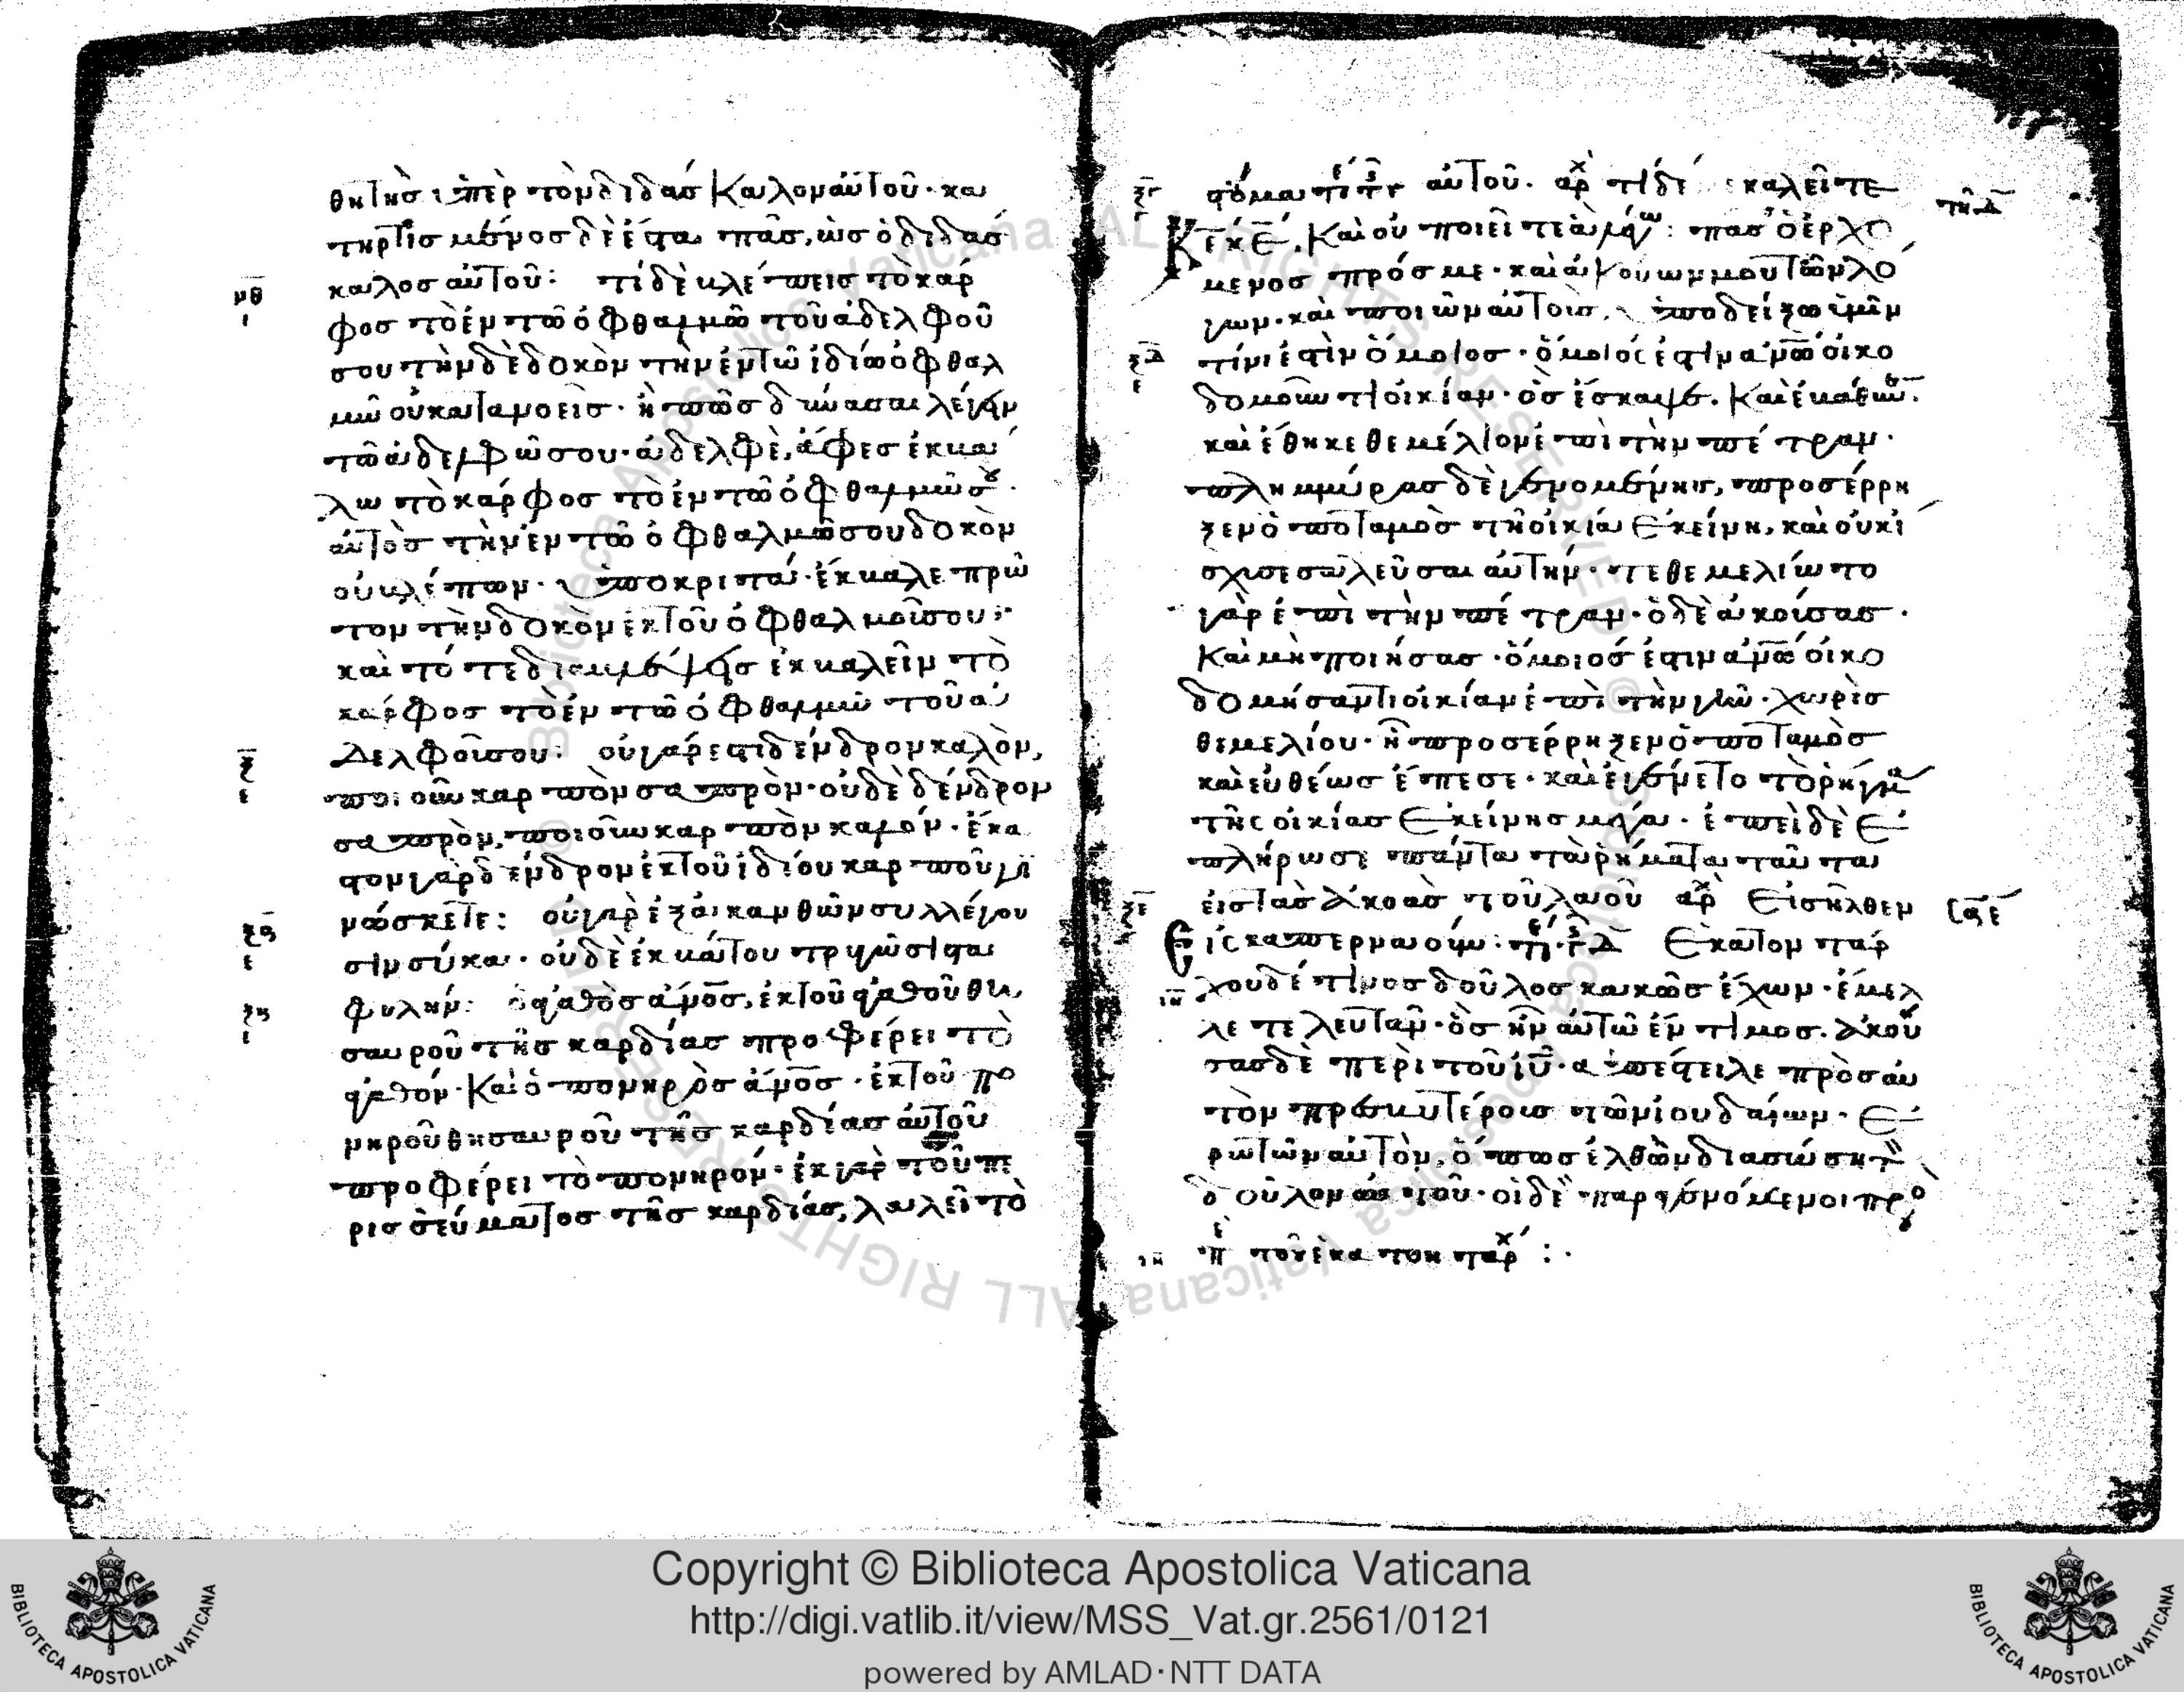 θητὴς ὑπὲρ τὸν διδάσκαλον αὐτοῦ· κα
τηρτισμένος δὲ ἔσται πᾶς, ὡς ὁ διδάσ
μθ
καλος αὐτοῦ: τί δὲ βλέπεις τὸ κάρ
φος τὸ ἐν τῶ ὀφθαλμῶ τοῦ ἀδελφοῦ
σου τὴν δὲ δοκὸν τὴν ἐν τῶ ἰδίω ὀφθαλ
μῶ οὐ κατανοεῖς· ἢ πῶς δύνασαι λέγειν
τῶ ἀδελφῶ σου· ἀδελφὲ, ἄφες ἐκβά
λω τὸ κάρφος τὸ ἐν τῶ ὀφθαλμῶ σου·
αὐτὸς τὴν ἐν τῶ ὀφθαλμῶ σου δοκὸν
οὐ βλέπων· ὑποκριτά· ἔκβαλε πρῶ
τον τὴν δοκὸν ἐκ τοῦ ὀφθαλμοῦ σου·
καὶ τότε διαβλέψεις ἐκβαλεῖν τὸ
κάρφος τὸ ἐν τῶ ὀφθαλμῶ τοῦ ἀ
δελφοῦ σου: οὐ γάρ ἐστι δένδρον καλὸν,
ποιοῦν καρπὸν σαπρὸν· οὐδὲ δένδρον
σαπρὸν, ποιοῦν καρπὸν καλόν· ἕκα
στον γὰρ δένδρον ἐκ τοῦ ἰδίου καρποῦ γι
νώσκεται: οὐ γὰρ ἐξ ἀκανθῶν συλλέγου
σιν σύκα· οὐδὲ ἐκ βάτου τρυγῶσι στα
φυλήν: ὁ ἀγαθὸς ἄνος, ἐκ τοῦ ἀγαθοῦ θη
σαυροῦ τῆς καρδίας προφέρει τὸ
ἀγαθόν· Καὶ ὁ πονηρὸς ἄνος· ἐκ τοῦ πο
νηροῦ θησαυροῦ τῆς καρδίας αὐτοῦ
προφέρει τὸ πονηρόν· ἐκ γὰρ τοῦ πε
ρισσεύματος τῆς καρδίας, λαλεῖ τὸ
στόμα αὐτοῦ. τί δέ καλεῖτε
Κε κε, Καὶ οὐ ποιεῖτε ἃ λέγω: πᾶς ὁ ἐρχό
μενος πρός με· καὶ ἀκούων μου τῶν λό
γων· καὶ ποιῶν αὐτοὺς, ὑποδείξω ὑμῖν
τίνι ἐστὶν ὅμοιος· ὅμοιός ἐστιν ἀνω οἰκο
δομοῦντι οἰκίαν· ὃς ἔσκαψε. Καὶ ἐβάθυνε.
καὶ ἔθηκε θεμέλιον ἐπὶ τὴν πέτραν·
πλημμύρας δὲ γενομένης, προσέρρη
ξεν ὁ ποταμὸς τῆ οἰκία ἐκείνη, καὶ οὐκ ἴ
σχυσε σαλεῦσαι αὐτήν· τεθεμελίωτο
γὰρ ἐπὶ τὴν πέτραν· ὁ δὲ ἀκούσας·
Καὶ μὴ ποιήσας· ὅμοιός ἐστιν ἀνω οἰκο
δομήσαντι οἰκίαν ἐπὶ τὴν γῆν· χωρὶς
θεμελίου· ἧ προσέρρηξεν ὁ ποταμὸς
καὶ εὐθέως ἔπεσε· καὶ ἐγένετο τὸ ρῆγμα
τῆς οἰκίας ἐκείνης μέγα· ἐπεὶ δὲ ἐ
πλήρωσε πάντα τὰ ρήματα ταῦτα
εἰς τὰς ἀκοὰς τοῦ λαοῦ Εἰσῆλθεν
Εἰς καπερναούμ: Ἑκατοντάρ
χου δέ τινος δοῦλος κακῶς ἔχων· ἔμελ
λε τελευτᾶν· ὃς ἦν αὐτῶ ἔντιμος. Ἀκού
σας δὲ περὶ τοῦ ἰυ· ἀπέστειλε πρὸς αὐ
τὸν πρεσβυτέρους τῶν ἰουδαίων· ἐ
ρωτῶν αὐτὸν, ὅπως ἐλθὼν διασώση τὸ
δοῦλον αὐτοῦ· οἱ δὲ παραγενόμενοι πρὸ
τοῦ ἑκατοντάρχ :·
Copyright © Biblioteca Apostolica Vaticana
http://digi.vatlib.it/view/MSS_Vat.gr.2561/0121
powered by AMLAD·NTT DATA
BIBLIOTECA APOSTOLICA VATICANA
BIBLIOTECA APOSTOLICA VATICANA